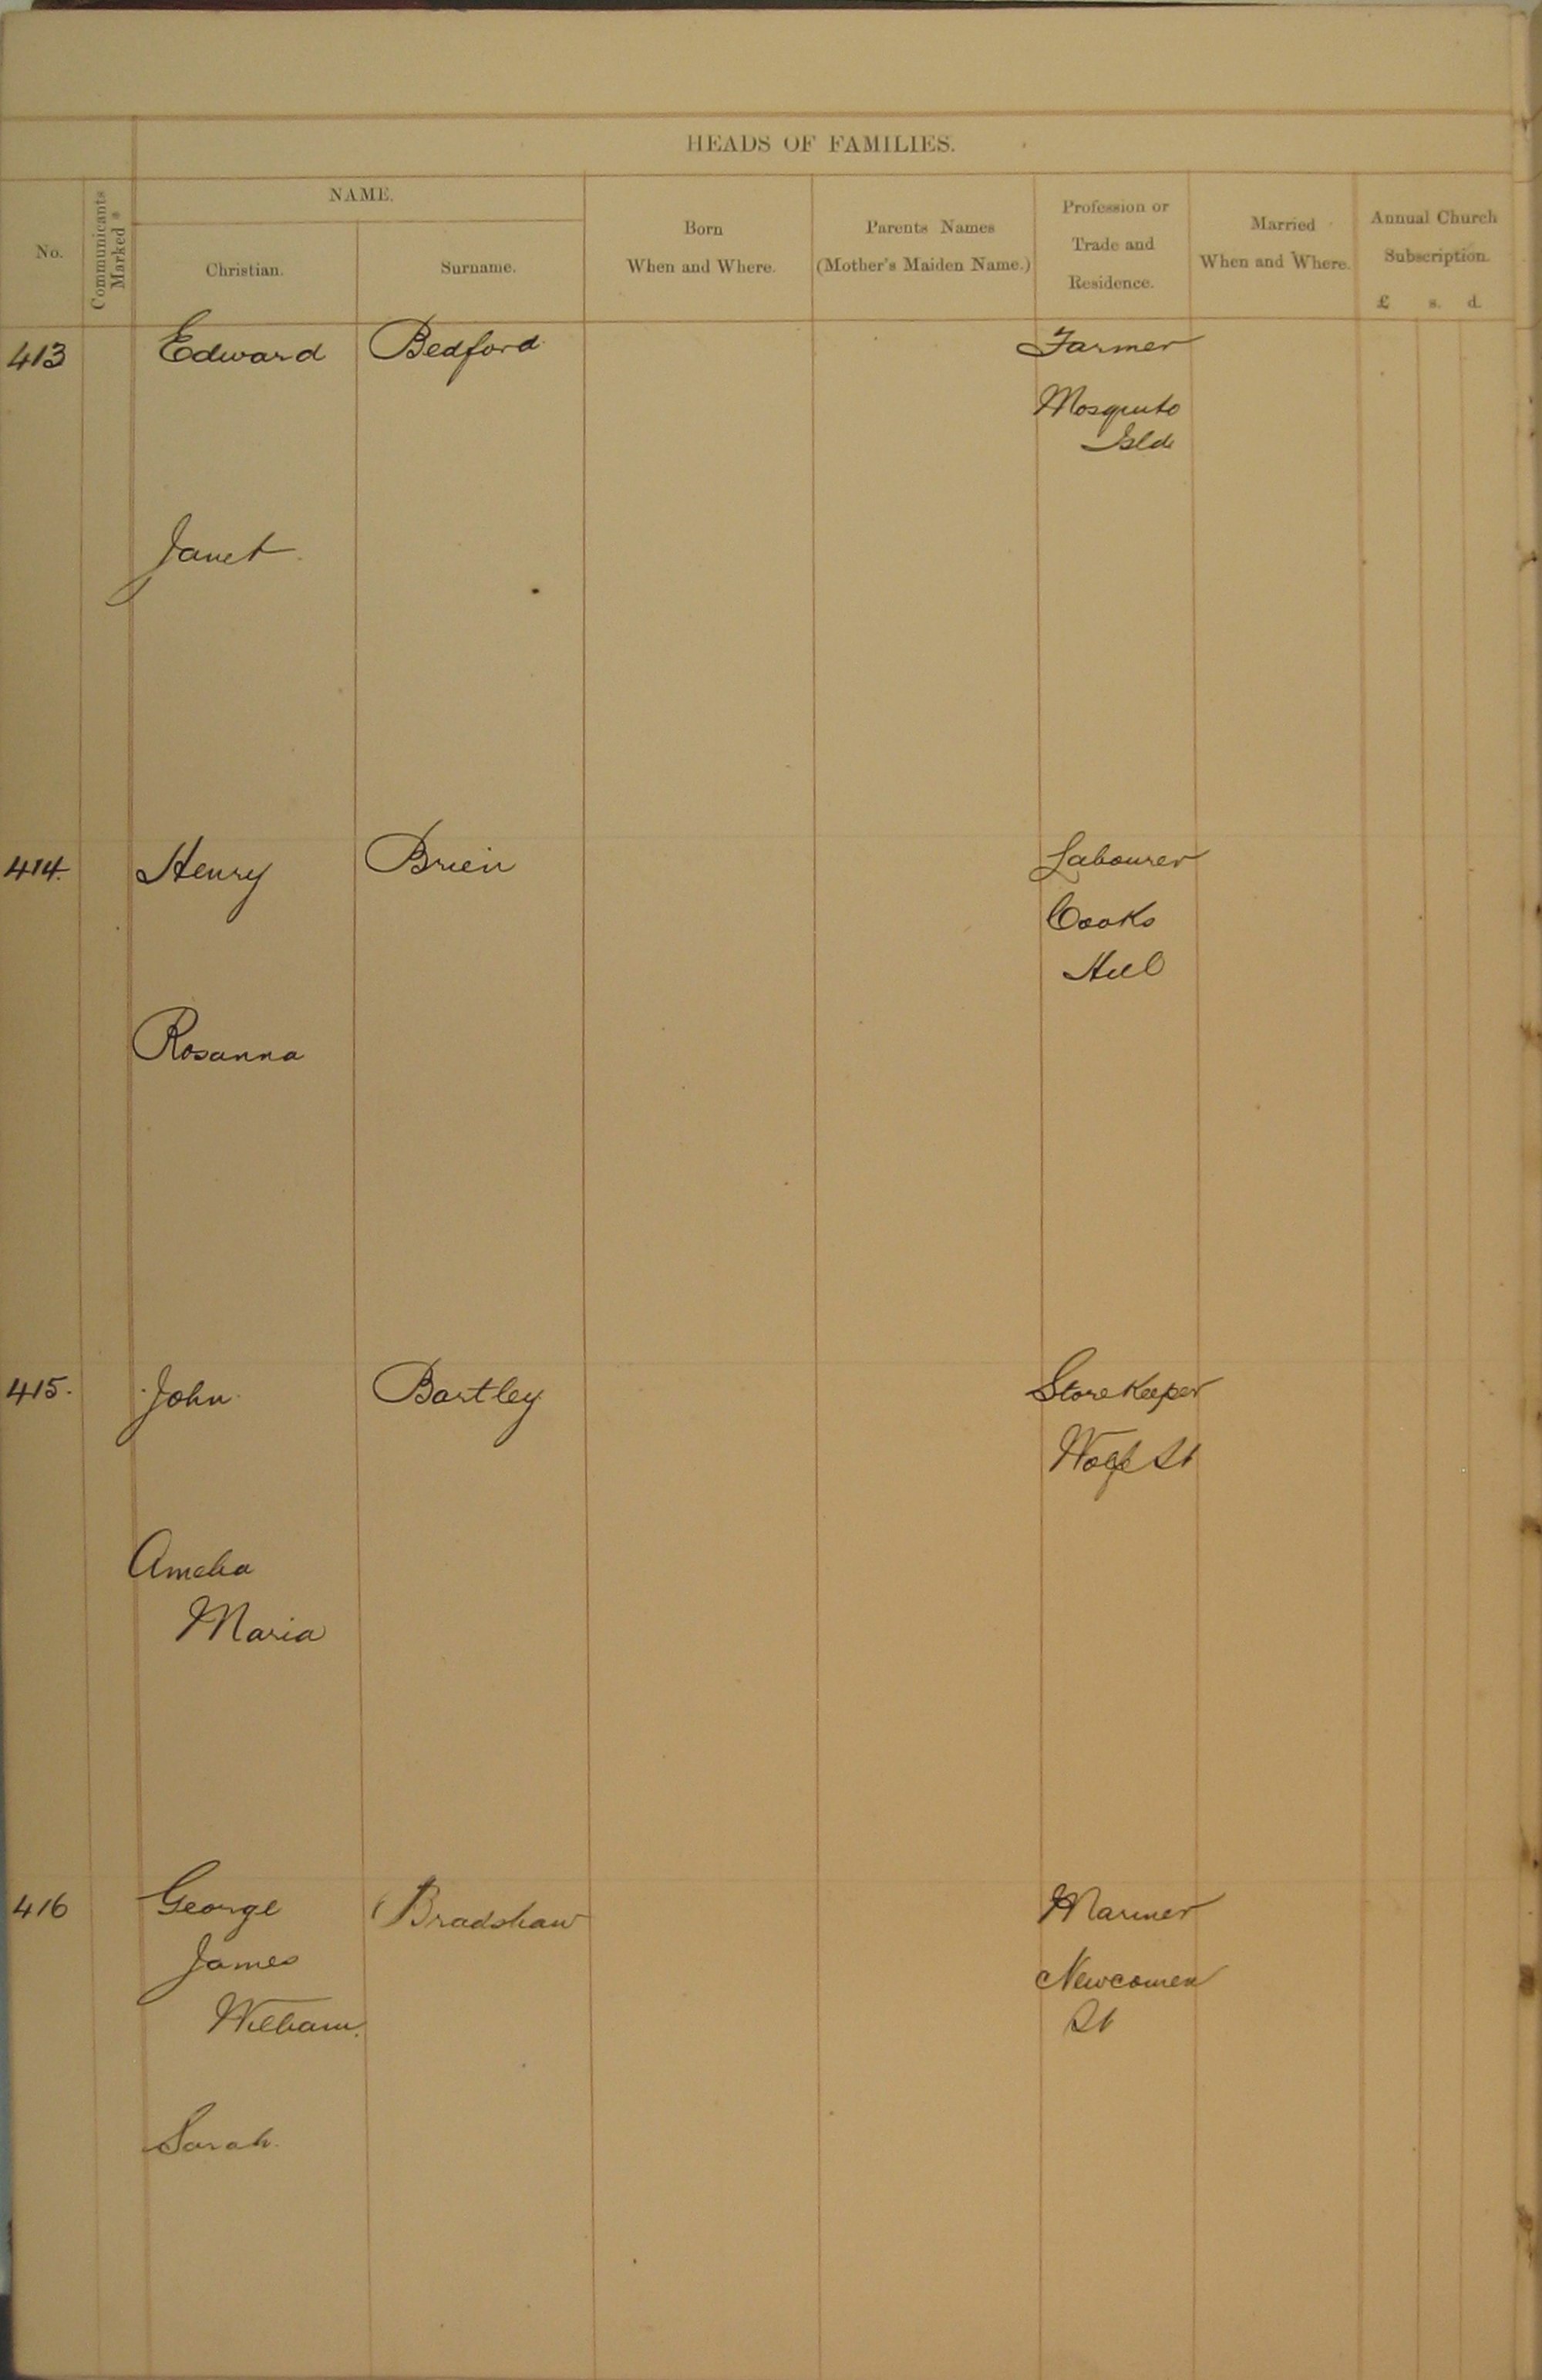 HEADS OF FAMILIES.
No.
Communicants
Marked *
NAME.
Christian.
Surname.
Born
When and Where.
Parents Names
(Mother's Maiden Name.)
Profession or
Trade and
Residence.
Married
When and Where.
Annual Church
Subscription
£ s. d.
413 Edward Bedford Farmer
Mosquito
Isld
Janet
414. Henry Brien Labourer
Cooks
Hill
Rosanna
415. John Bartley Storekeeper
Wolfe St
Amelia
Maria
416 George Bradshaw Mariner
James Newcomen
William. St
Sarah.